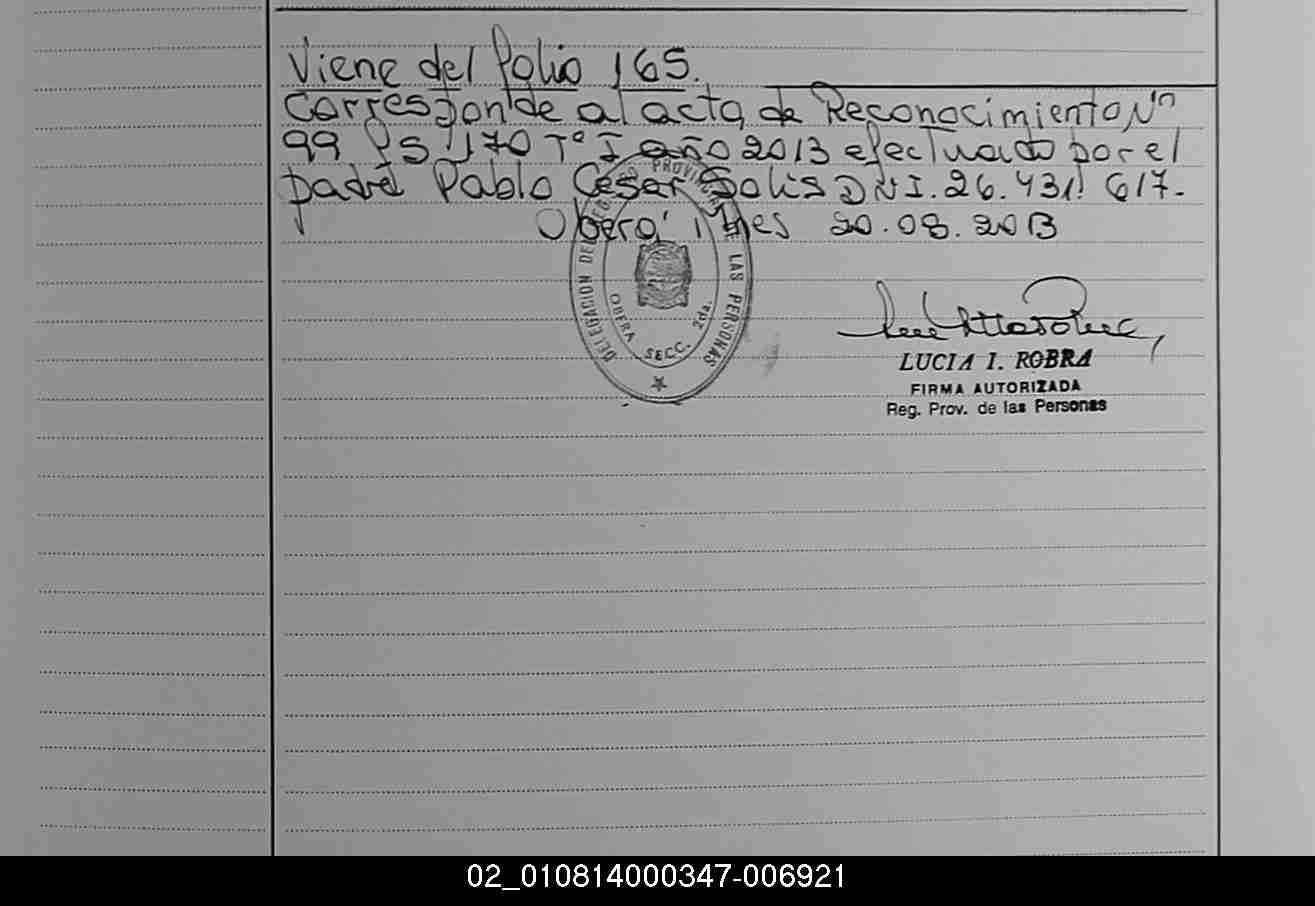 Viene del folio 165.
Corresponde al acta de Reconocimiento Nº
99 fs 170 Tº I año 2013 efectuado por el
padre Pablo Cesar Solis DNI. 26.431.617.-
Oberá, Mnes 20.08.2013
DELEGACION DEL REGISTRO PROVINCIAL DE LAS PERSONAS
OBERA SECC. 2da.
LUCIA I. ROBRA
FIRMA AUTORIZADA
Reg. Prov. de las Personas
02_010814000347-006921